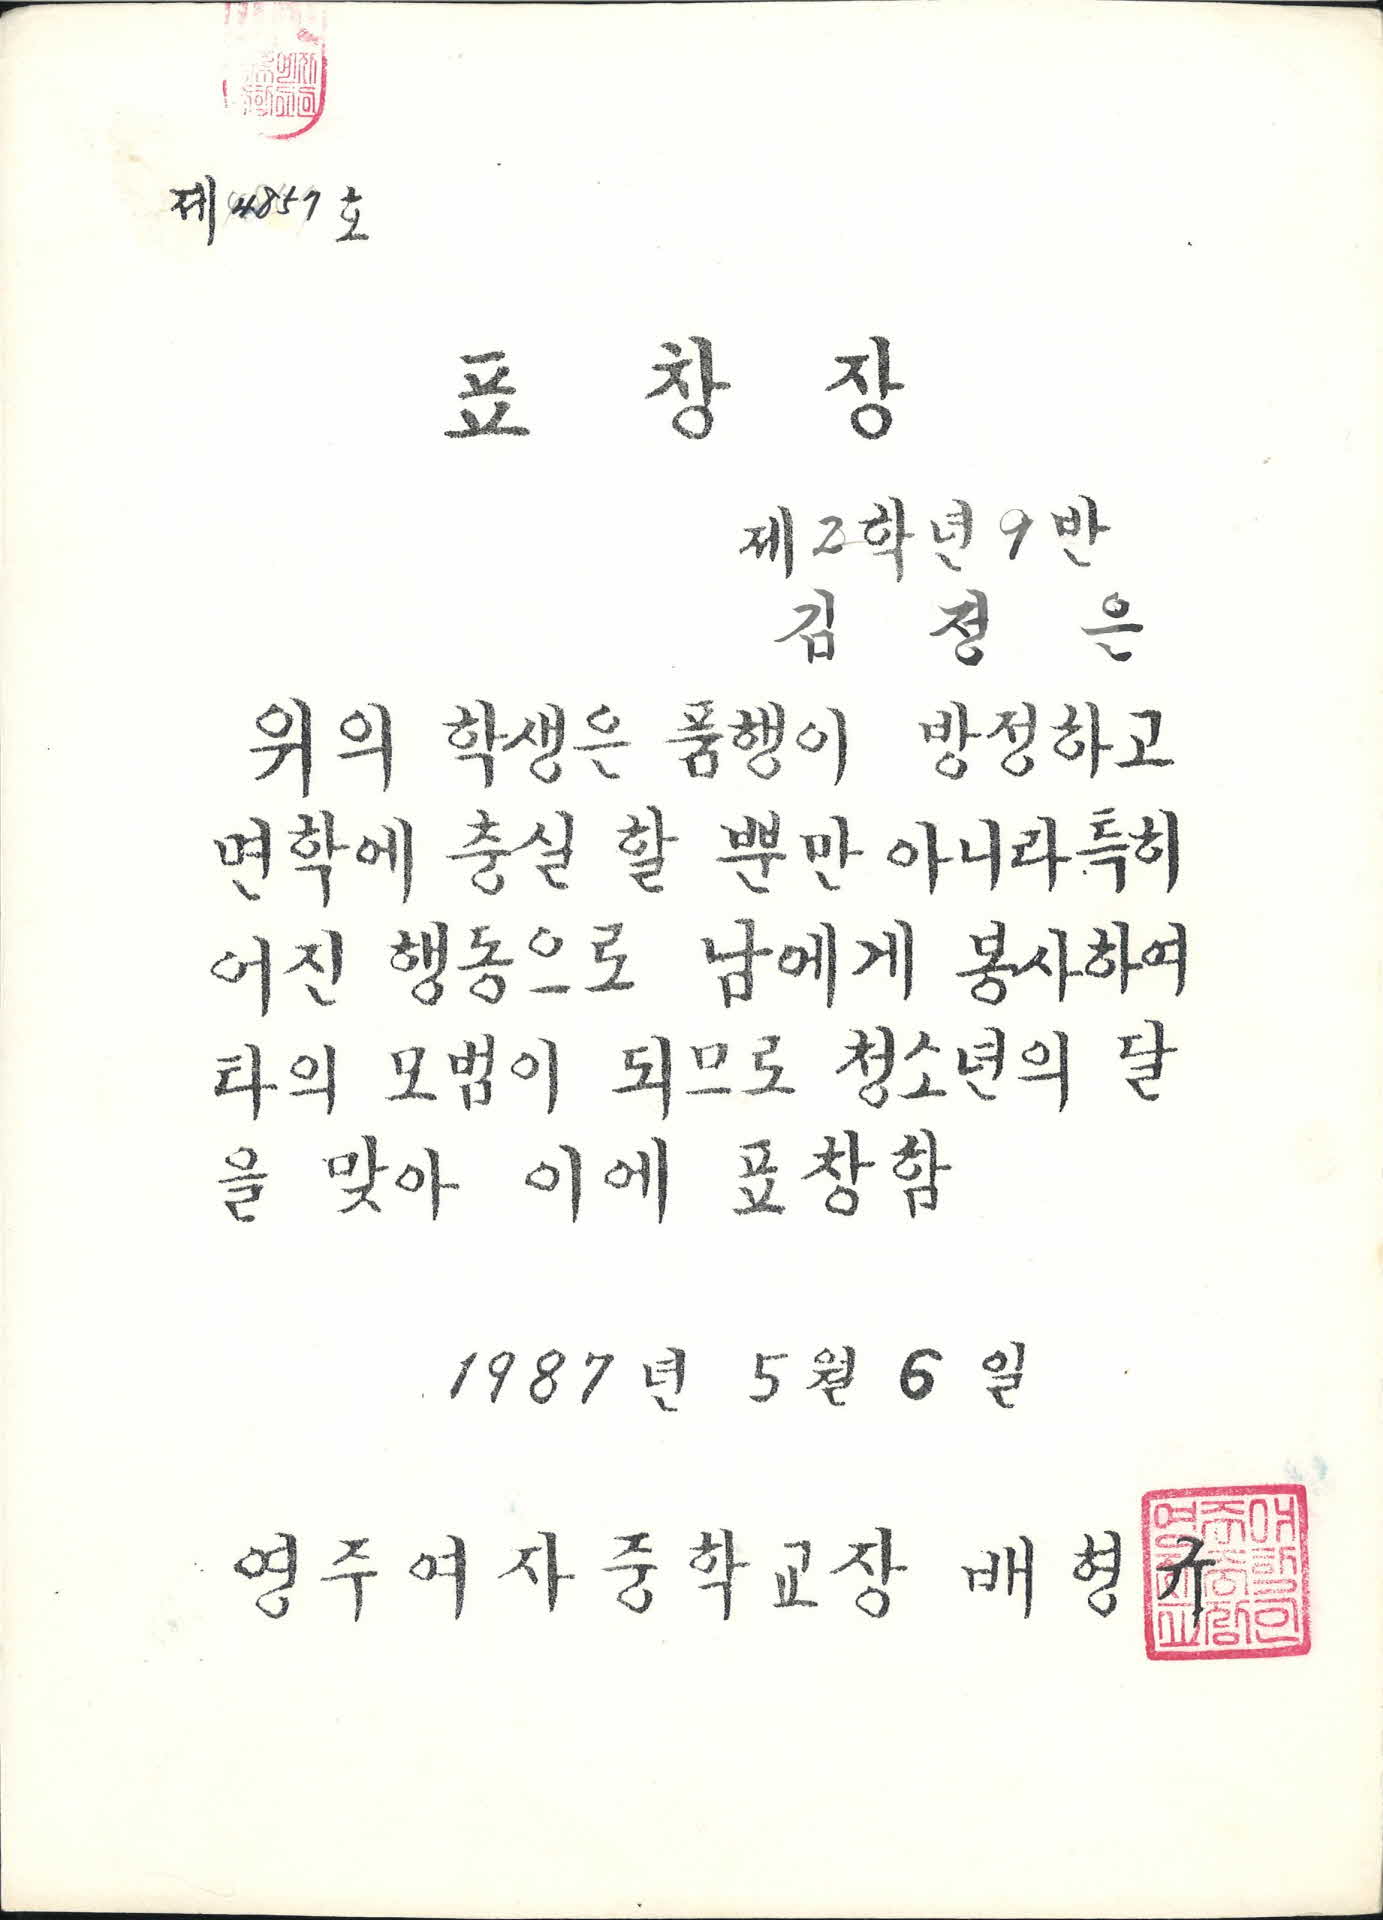 제4857호
표 창 장
제2학년 9반
김 정 은
위의 학생은 품행이 방정하고
면학에 충실 할 뿐만 아니라 특히
어진 행동으로 남에게 봉사하여
타의 모범이 되므로 청소년의 달
을 맞아 이에 표창함
1987년 5월 6일
영주여자중학교장 배형규